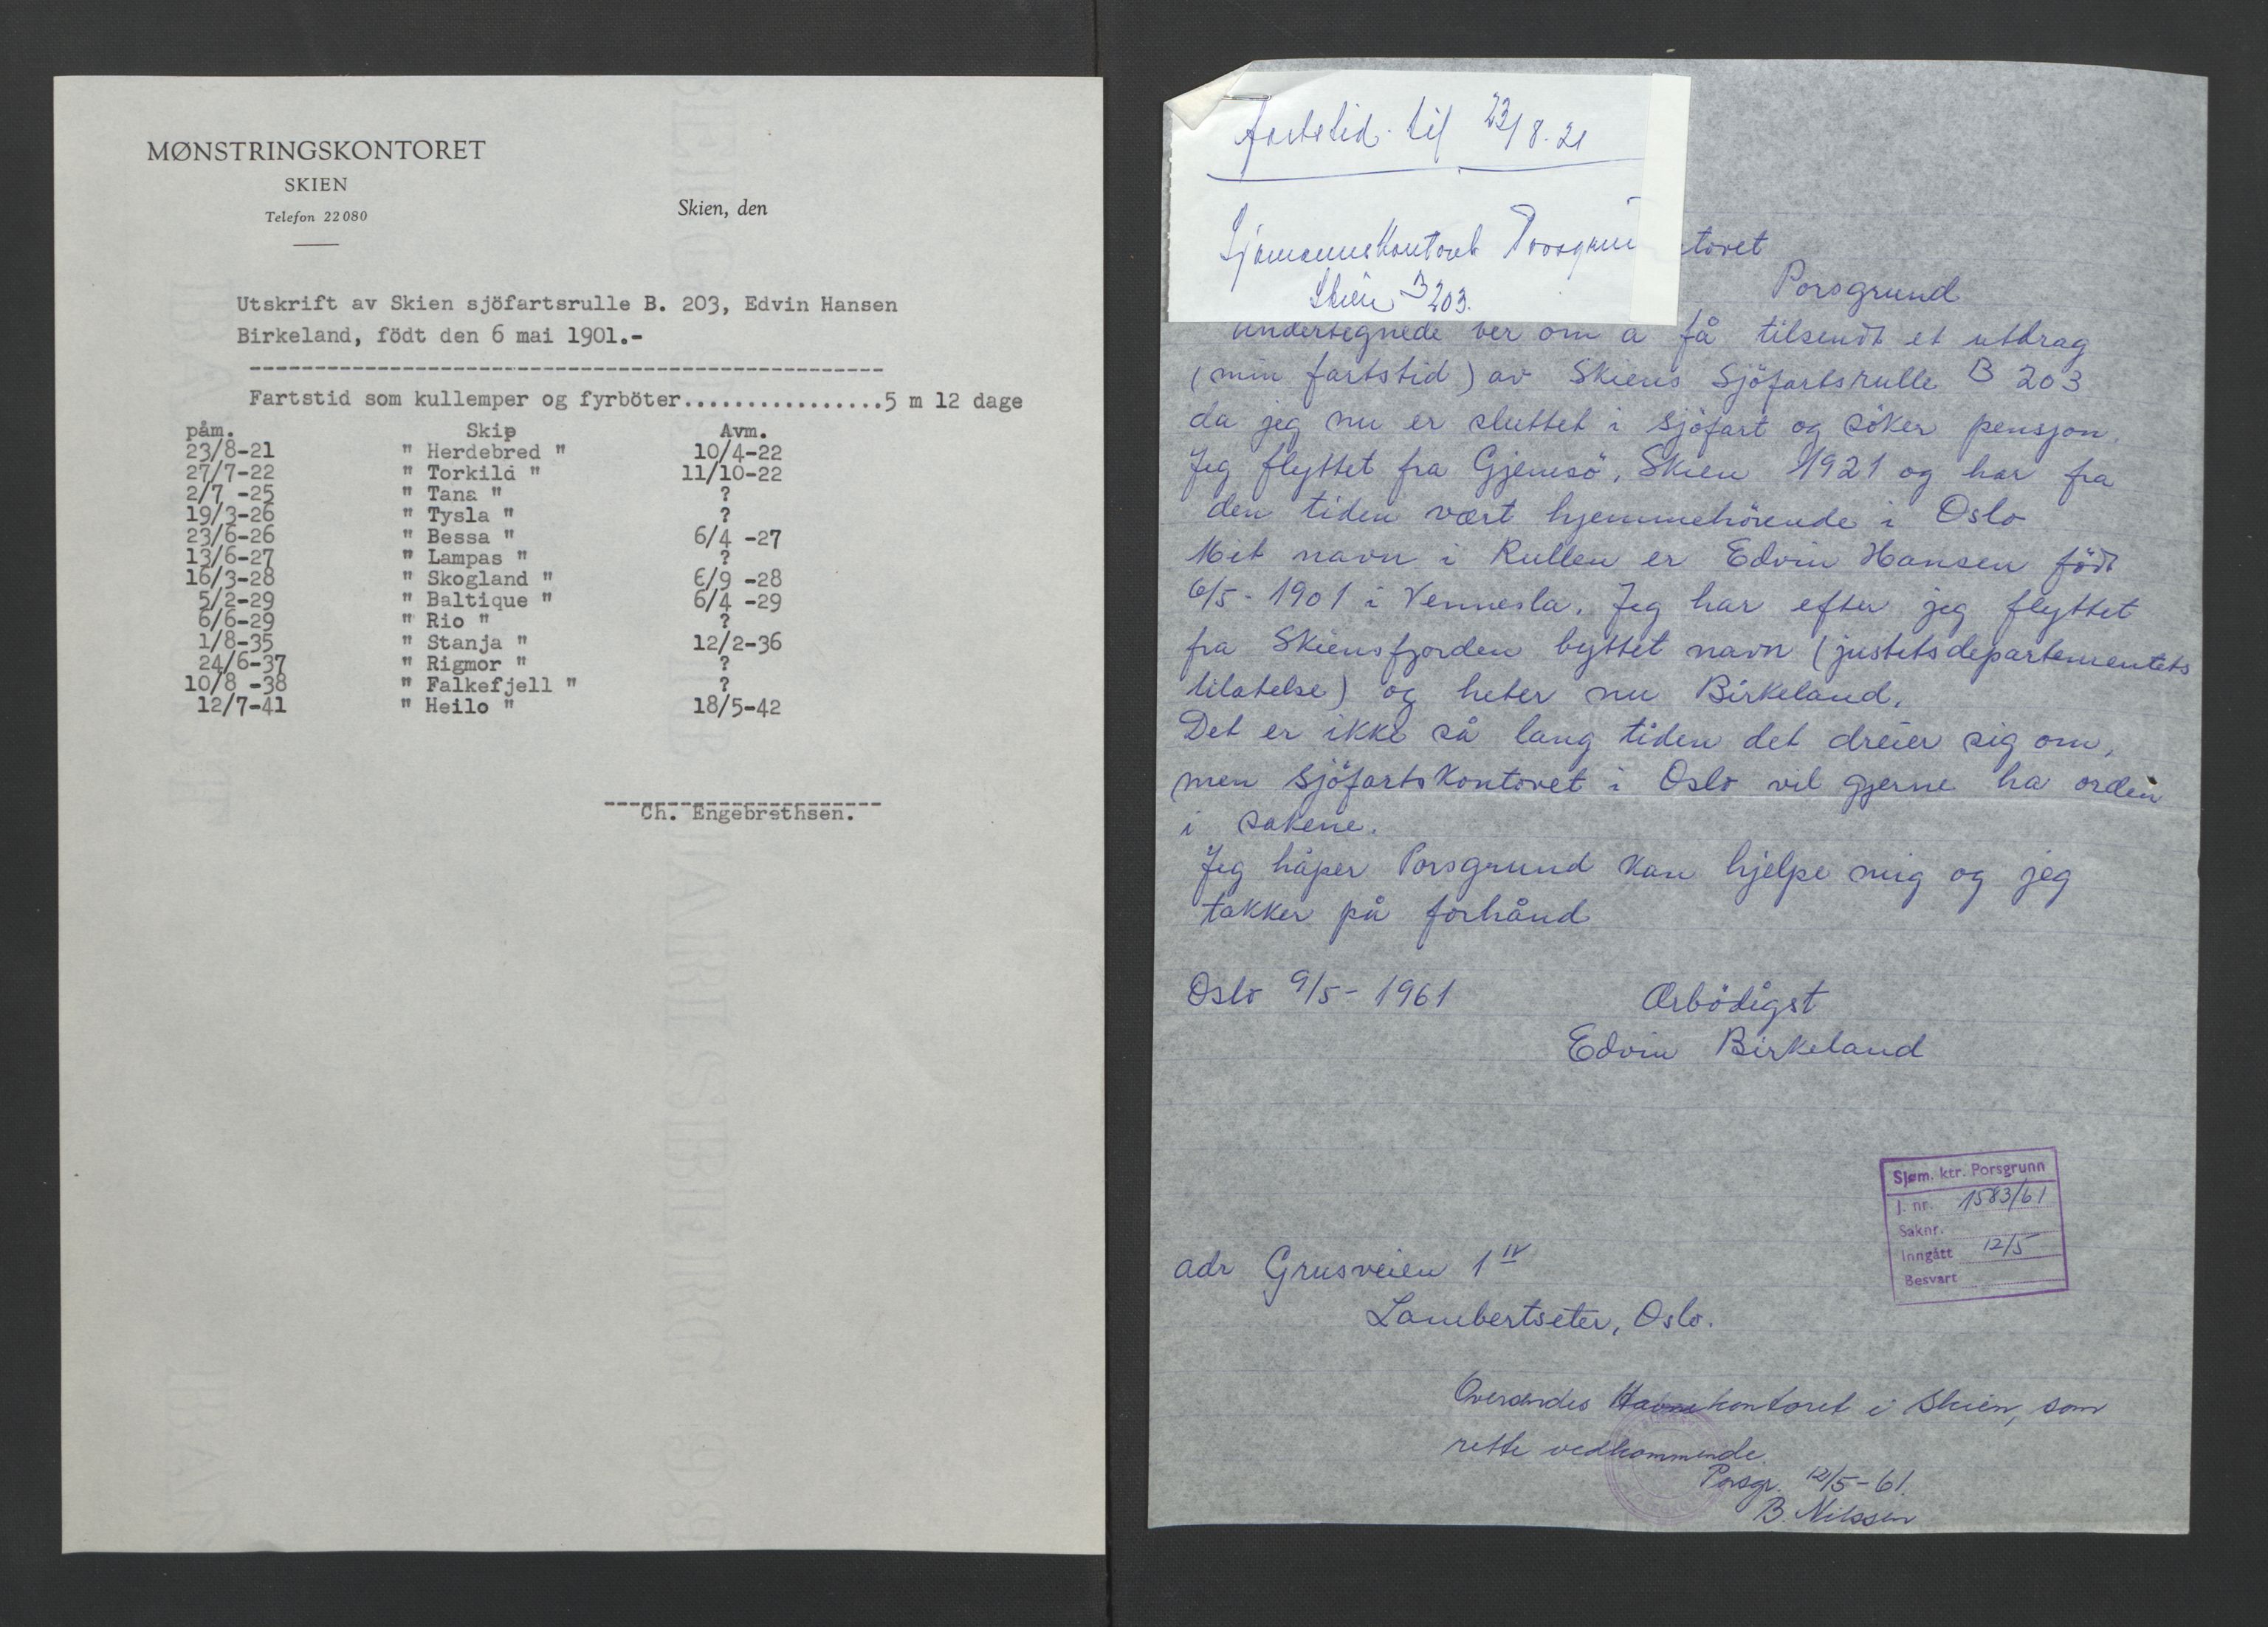 MØNSTRINGSKONTORET
SKIEN
Telefon 22080
Skien, den
Utskrift av Skien sjöfartsrulle B. 203, Edvin Hansen
Birkeland, födt den 6 mai 1901.-
Fartstid som kullemper og fyrböter................5 m 12 dage
påm. Skip Avm.
23/8-21 " Herdebred " 10/4-22
27/7-22 " Torkild " 11/10-22
2/7 -25 " Tana " ?
19/3-26 " Tysla " ?
23/6-26 " Bessa " 6/4 -27
13/6-27 " Lampas " ?
16/3-28 " Skogland " 6/9 -28
5/2-29 " Baltique " 6/4 -29
6/6-29 " Rio " ?
1/8-35 " Stanja " 12/2-36
24/6-37 " Rigmor " ?
10/8 -38 " Falkefjell " ?
12/7-41 " Heilo " 18/5-42
Ch. Engebrethsen.
til 23/8.21
Sjømannskontoret Porsgrun
Skien B 203.
ntoret
Porsgrund
Undertegnede ber om å få tilsendt et utdrag
(min fartstid) av Skiens Sjöfartsrulle B 203
da jeg nu er sluttet i sjöfart og söker pensjon.
Jeg flyttet fra Gjemsö, Skien 1921 og har fra
den tiden vært hjemmehörende i Oslo
Mit navn i Rullen er Edvin Hansen födt
6/5-1901 i Vennesla. Jeg har efter jeg flyttet
fra Skiensfjorden byttet navn (justitsdepartementets
tilatelse) og heter nu Birkeland.
Det er ikke så lang tiden det dreier sig om,
men sjöfartskontoret i Oslo vil gjerne ha orden
i sakene.
Jeg håper Porsgrund kan hjelpe mig og jeg
takker på forhånd
Oslo 9/5-1961 Ærbödigst
Edvin Birkeland
Sjøm. ktr. Porsgrunn
J. nr. 1583/61
Saknr.
Inngått 12/5
Besvart
adr Grusveien 1 IV
Lambertseter, Oslo.
Oversendes Havnekontoret i Skien, som
rette vedkommende.
Porsgr. 12/5-61.
B. Nilssen